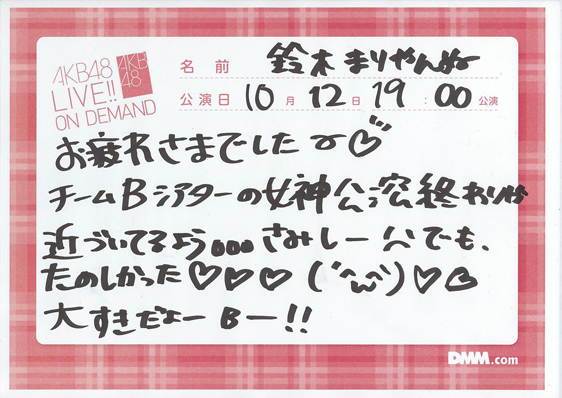 AKB48
LIVE!!
ON DEMAND
AKB
48
名前 鈴木まりやんぬ
公演日 10月 12日 19:00公演
お疲れさまでした〜♡
チームBシアターの女神公演終わりが
近づいてるよう。。。さみしー でも、
たのしかった♡♡♡(´^ω^`)♡♡
大すきだよーBー!!
DMM.com